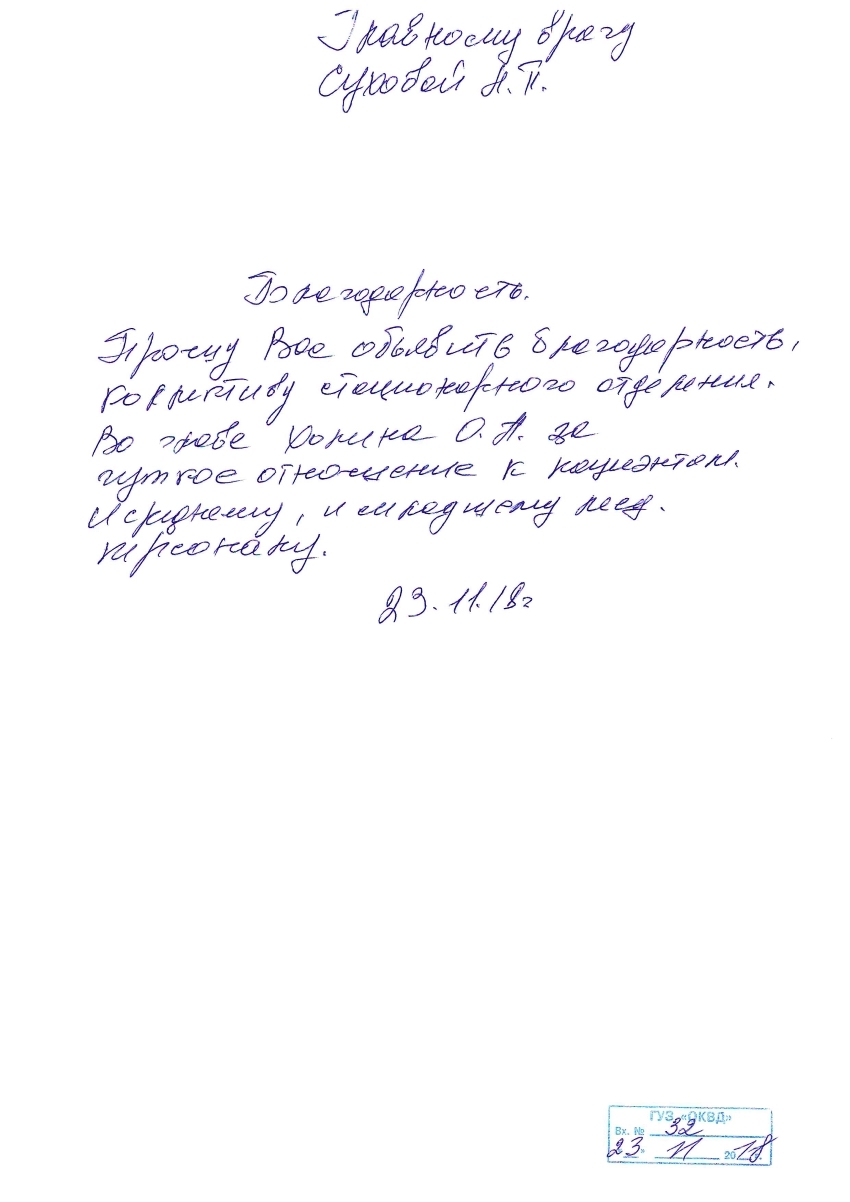 Главному врачу
Суховой Н.П.
Благодарность.
Прошу Вас объявить благодарность,
коллективу стационарного отделения.
Во главе Хопина О.А. за
чуткое отношение к пациэнтам.
И среднему, и младшему мед.
персоналу.
23.11.18г
ГУЗ «ОКВД»
Вх. № 32
23 » 11 2018